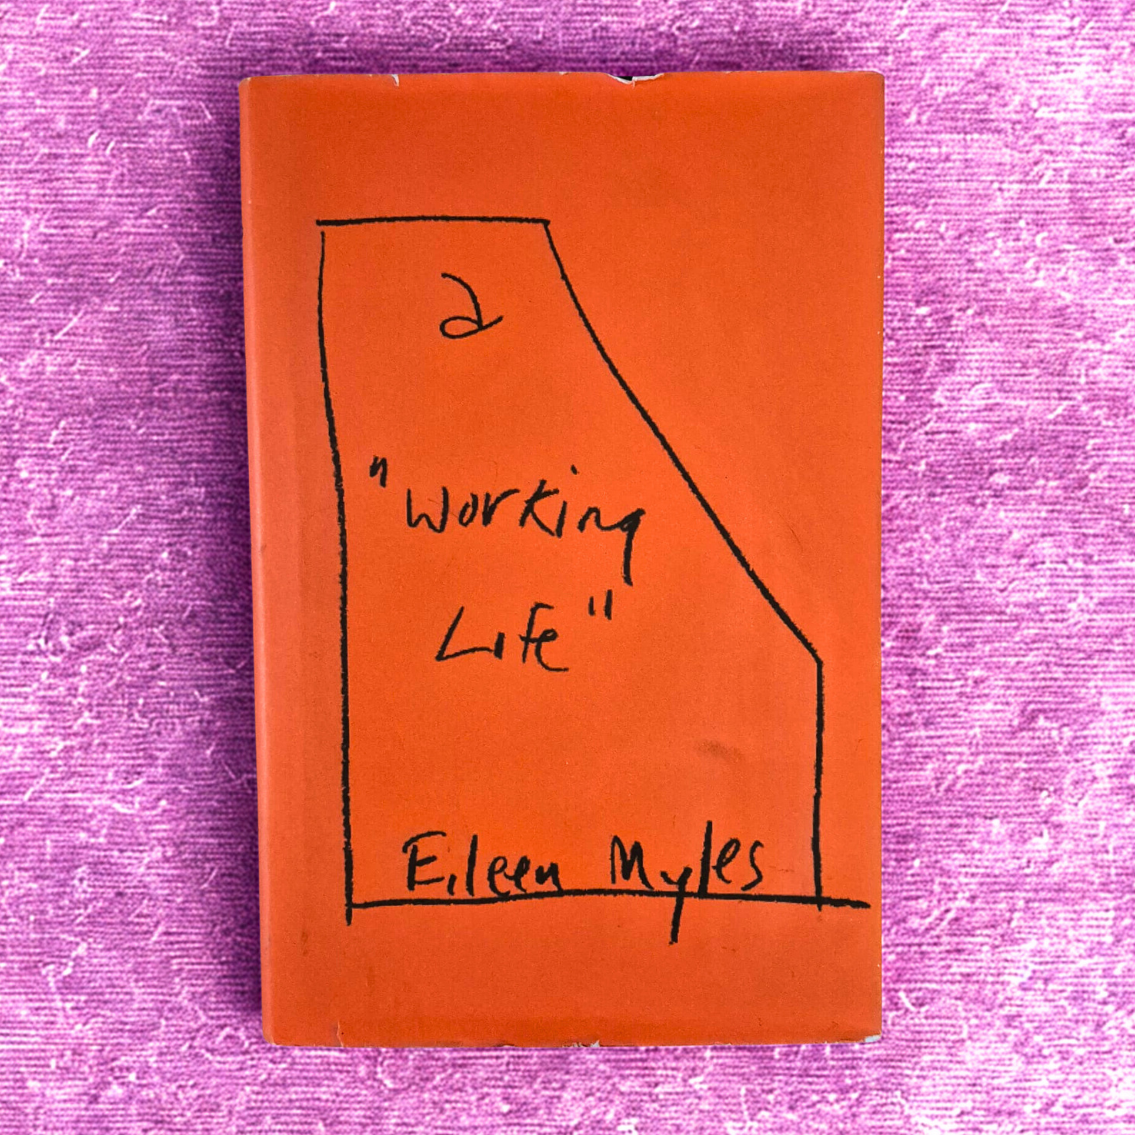 a
"Working
Life"
Eileen Myles